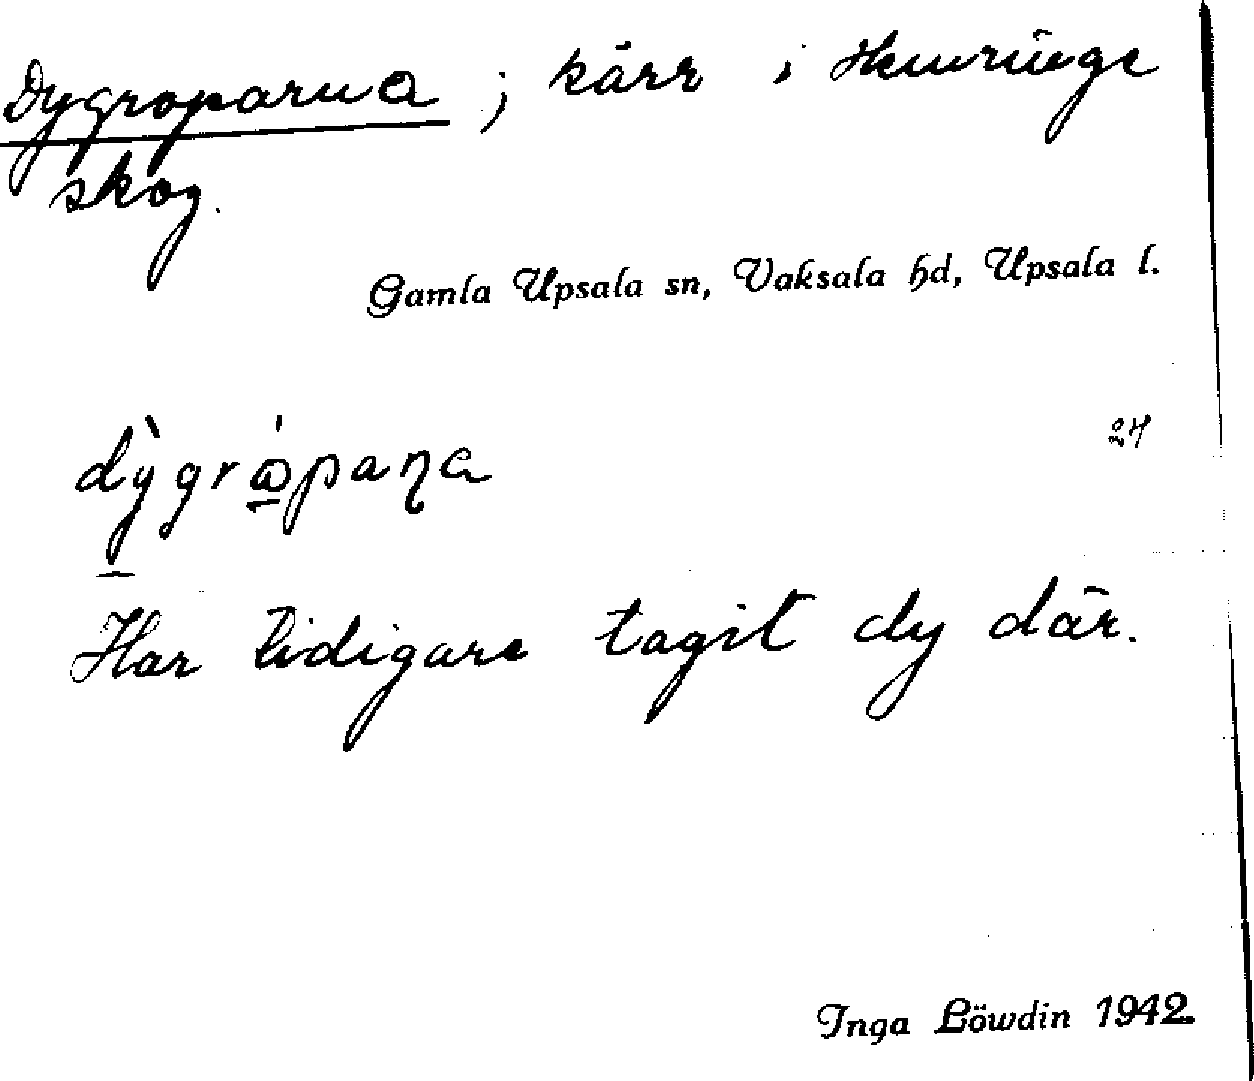 Dygroparna ; kärr i Hemringe
skog.
Gamla Upsala sn, Vaksala hd, Upsala l.
24
dỳgrɷ́paɳa
Har tidigare tagit dy där.
Inga Löwdin 1942.